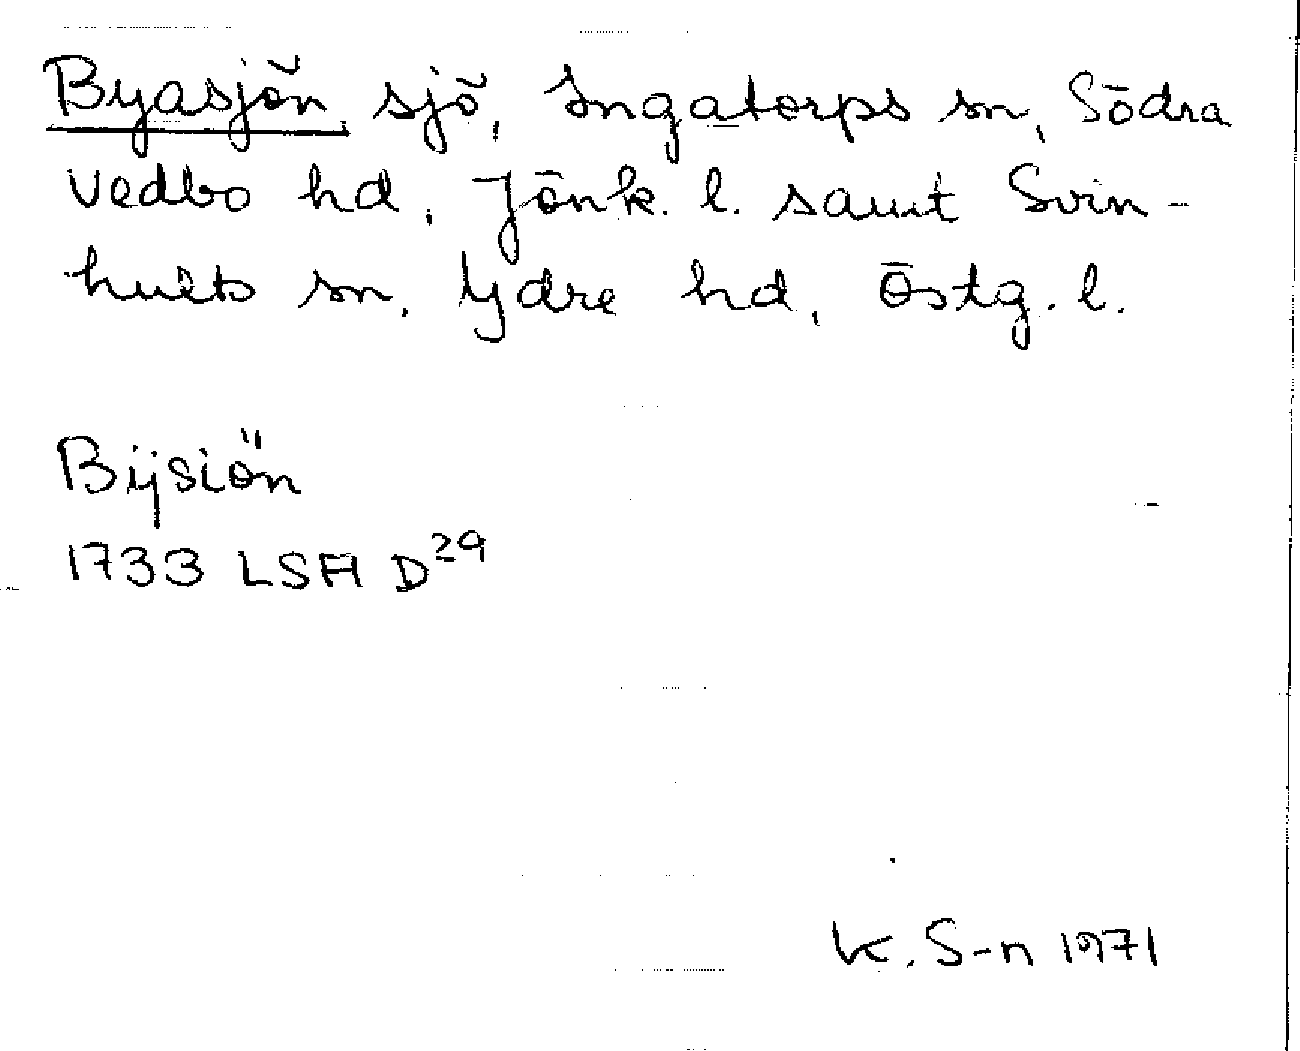 Byasjön sjö, Ingatorps sn, Södra
Vedbo hd, Jönk. l. samt Svin-
hults sn, Ydre hd, Östg. l.
Bijsiön
1733 LSA D29
K. S-n 1971